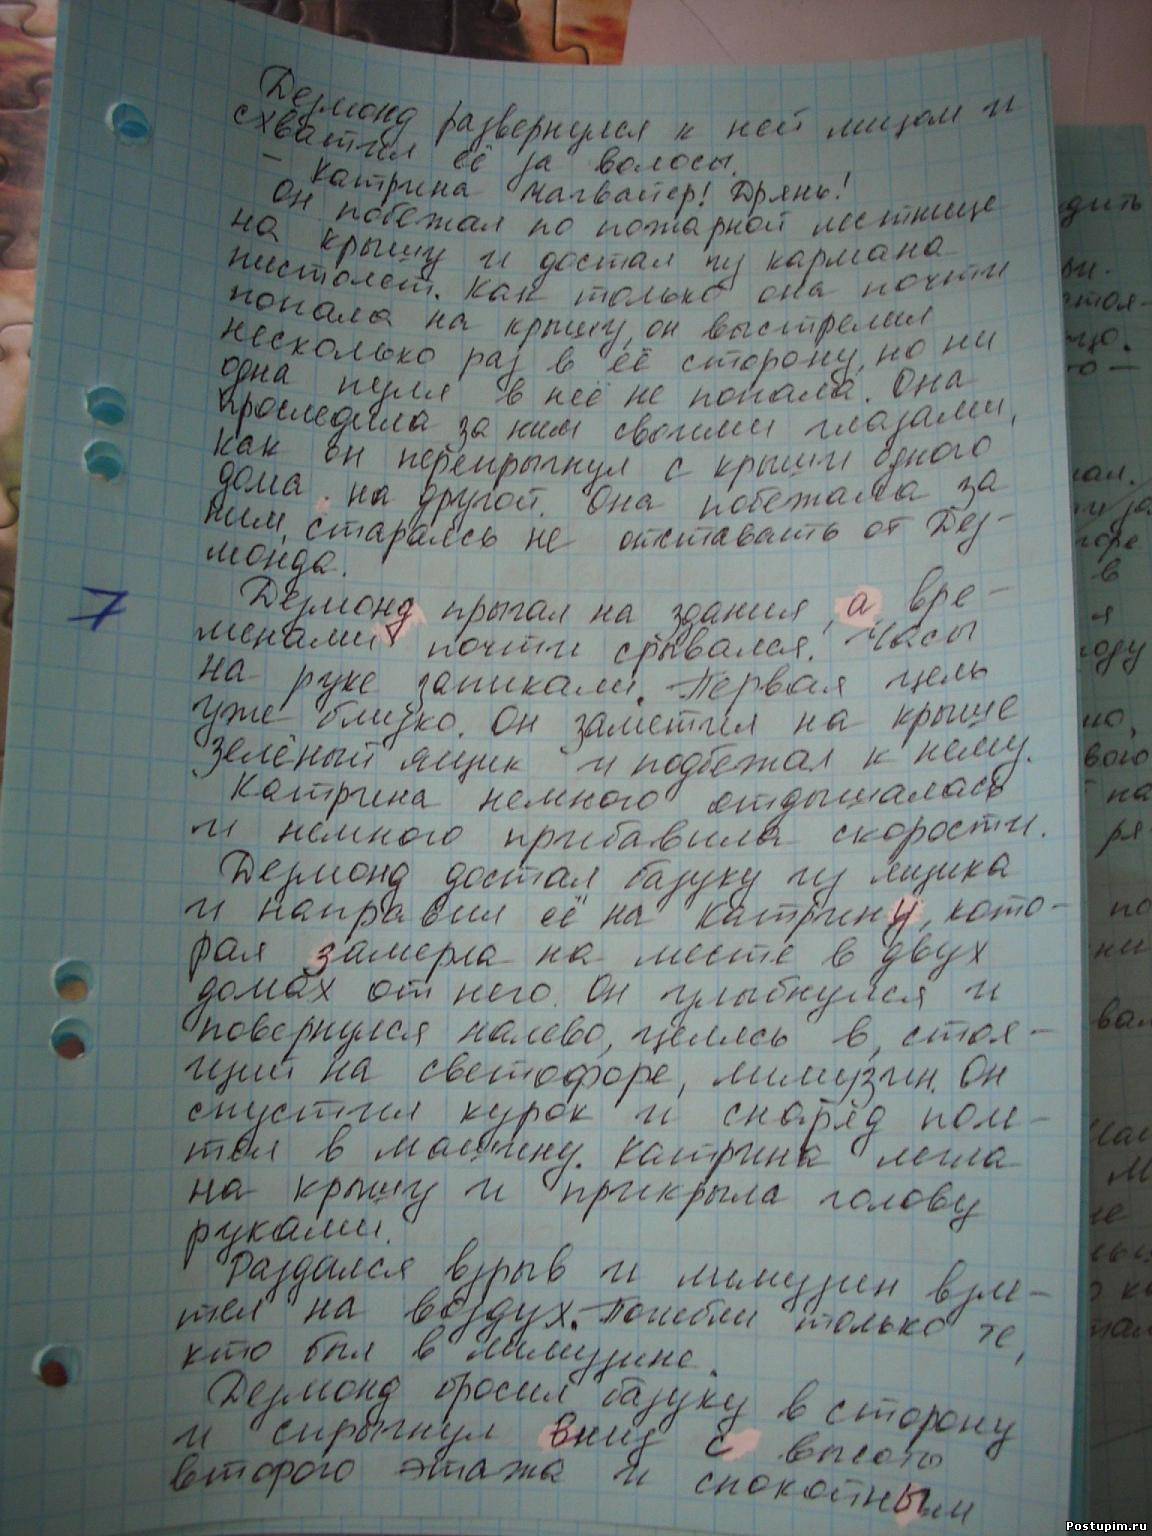 Дезмонд развернулся к ней лицом и
схватил её за волосы.
- Катрина Магвайер! Дрянь!
Он побежал по пожарной лестнице
на крышу и достал из кармана
пистолет. Как только она почти
попала на крышу, он выстрелил
несколько раз в её сторону, но ни
одна пуля в неё не попала. Она
проследила за ним своими глазами,
как он перепрыгнул с крыши одного
дома на другой. Она побежала за
ним, стараясь не отставать от Дез-
монда.
7
Дезмонд прыгал на здания, а вре-
менами почти срывался. Часы
на руке запикали. Первая цель
уже близко. Он заметил на крыше
зелёный ящик и подбежал к нему.
Катрина немного отдышалась
и немного прибавила скорости.
Дезмонд достал базуку из ящика
и направил её на Катрину, кото-
рая замерла на месте в двух
домах от него. Он улыбнулся и
повернулся налево, целясь в, стоя-
щий на светофоре, лимузин. Он
спустил курок и снаряд поле-
тел в машину. Катрина легла
на крышу и прикрыла голову
руками.
Раздался взрыв и лимузин взле-
тел на воздух. Погибли только те,
кто был в лимузине.
Дезмонд бросил базуку в сторону
и спрыгнул вниз с высоты
второго этажа и спокойным
дить
ы.
стоя-
цо.
о -
ал.
и за
горе
в
я
году
но,
вого
на
ря-
по
ни
вал
не
Postupim.ru